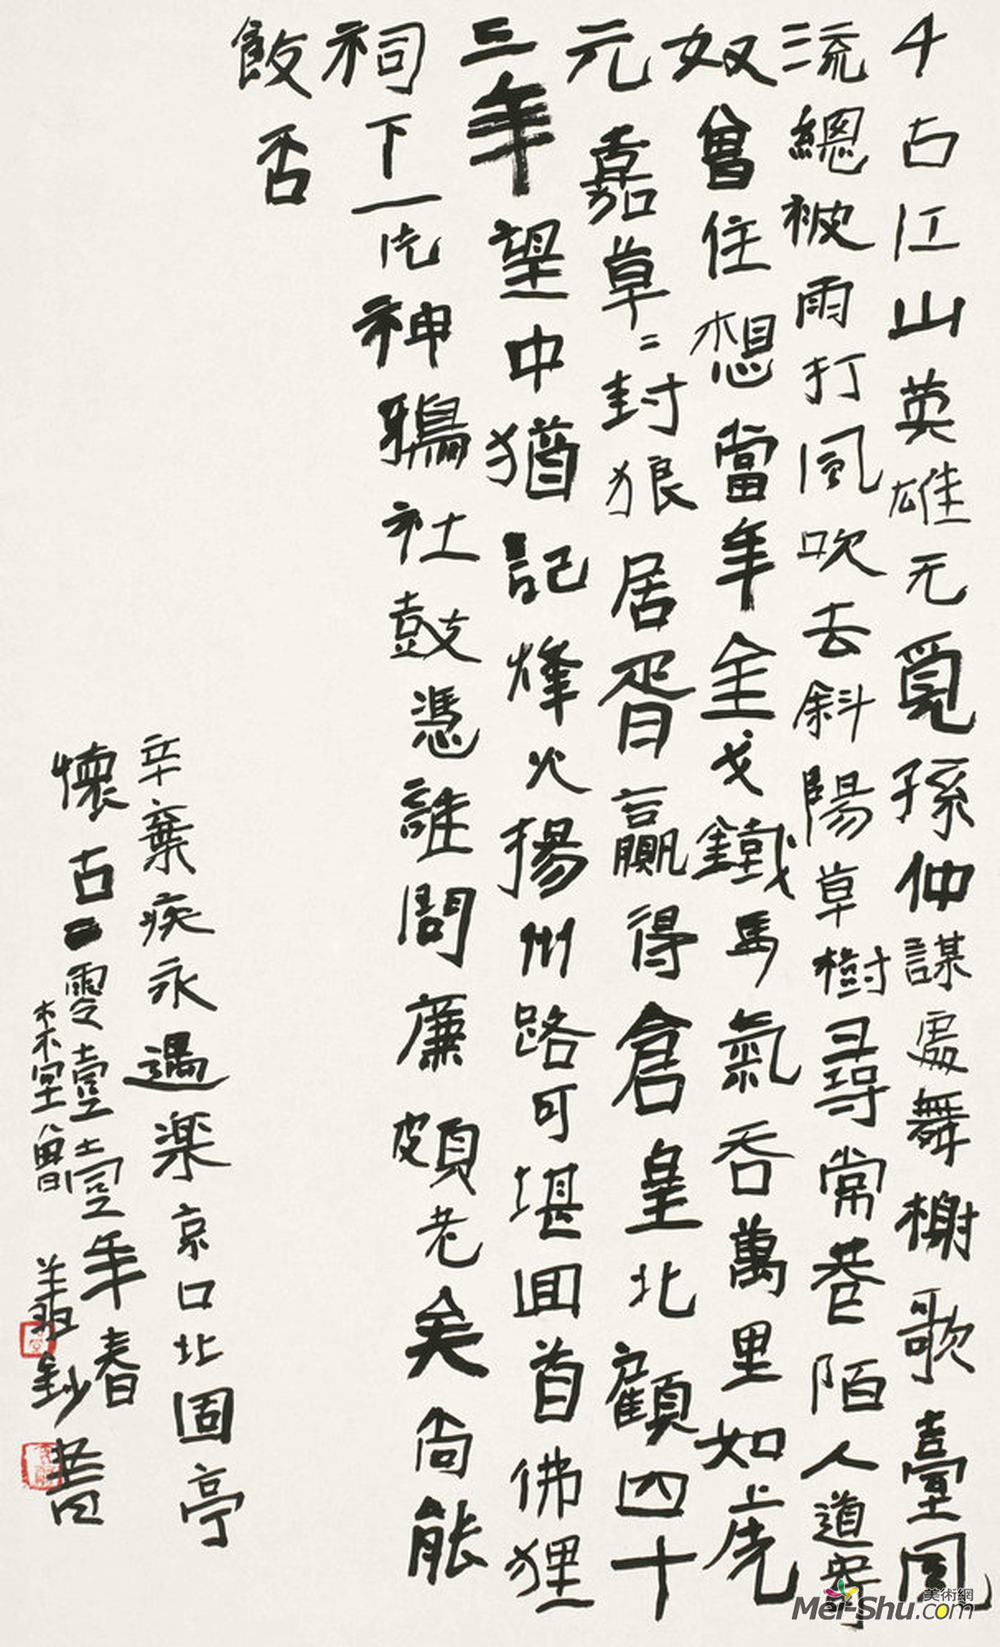 千古江山英雄无覓孫仲謀處舞榭歌臺風
流總被雨打風吹去斜陽草樹尋常巷陌人道寄
奴曾住想當年金戈鐵馬氣吞萬里如虎
元嘉草〻封狼居胥贏得倉皇北顧四十
三年望中猶記烽火揚州路可堪回首佛狸
祠下一片神鴉社鼓憑誰問廉頗老矣尚能
飯否
辛棄疾永遇楽京口北固亭
懷古二零壹壹年春
木木堂曾翔鈔書
美術網
Mei-Shu.com